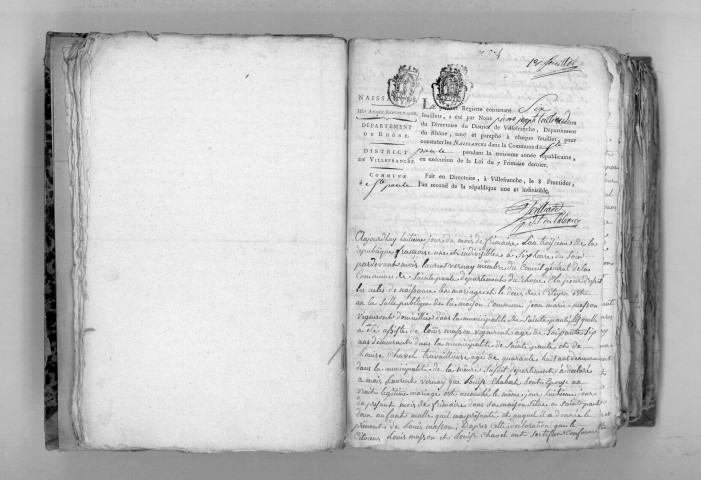 1er feuillet
NAISSANCES
IIIe ANNÉE RÉPUBLICAINE.
DÉPARTEMENT
DU RHÔNE.
DISTRICT
DE VILLEFRANCHE.
COMMUNE
de Ste paule
LE présent Registre contenant Six
feuillets, a été par Nous pierre joseph
du Directoire du District de Villefranche, Département
du Rhône, coté et paraphé à chaque feuillet, pour
constater les NAISSANCES dans la Commune de Ste
paule pendant la troisieme année républicaine,
en exécution de la Loi du 7 Frimaire dernier.
Fait en Directoire, à Villefranche, le 8 Fructidor,
l'an second de la république une et indivisible.
Aujourdhuy huitieme jour du mois de frimaire Lan troisieme de la
republique francoise une et indivisible a Six heure du Soir
pardevant mois laurent vernay membre du Conseil general de la
Commune de Sainte paule departement du rhone Elu pour
les actes de naissance de mariage et le deces des Citoyen est
en la Salle publique de la maison Commune jean marie masson
vigneront domicilies dans la municipalite de Sainte paule lequelle
a ete assiste de louis masson vigneront age de Soixante Six
ans demeurant dans la municipalite de Sainte paule et de
Louise Chavel travailleure age de quarante huit ans demeurant
dans la municipalite de Susdit departement a declare
a mois Laurent vernay que Louise Chabal Sont Epouse en
vrait legitime mariage est acouché le meme jour huitieme jour
du présent mois de frimaire dans Sa maison Situé a Sainte paule
dun anfant malle quil ma présanté et auquel il a donné le
prenont de Louis masson; Dapres cette declaration que les
Citoiens Louis masson et Louise Chavel ont Sertiffier conforme